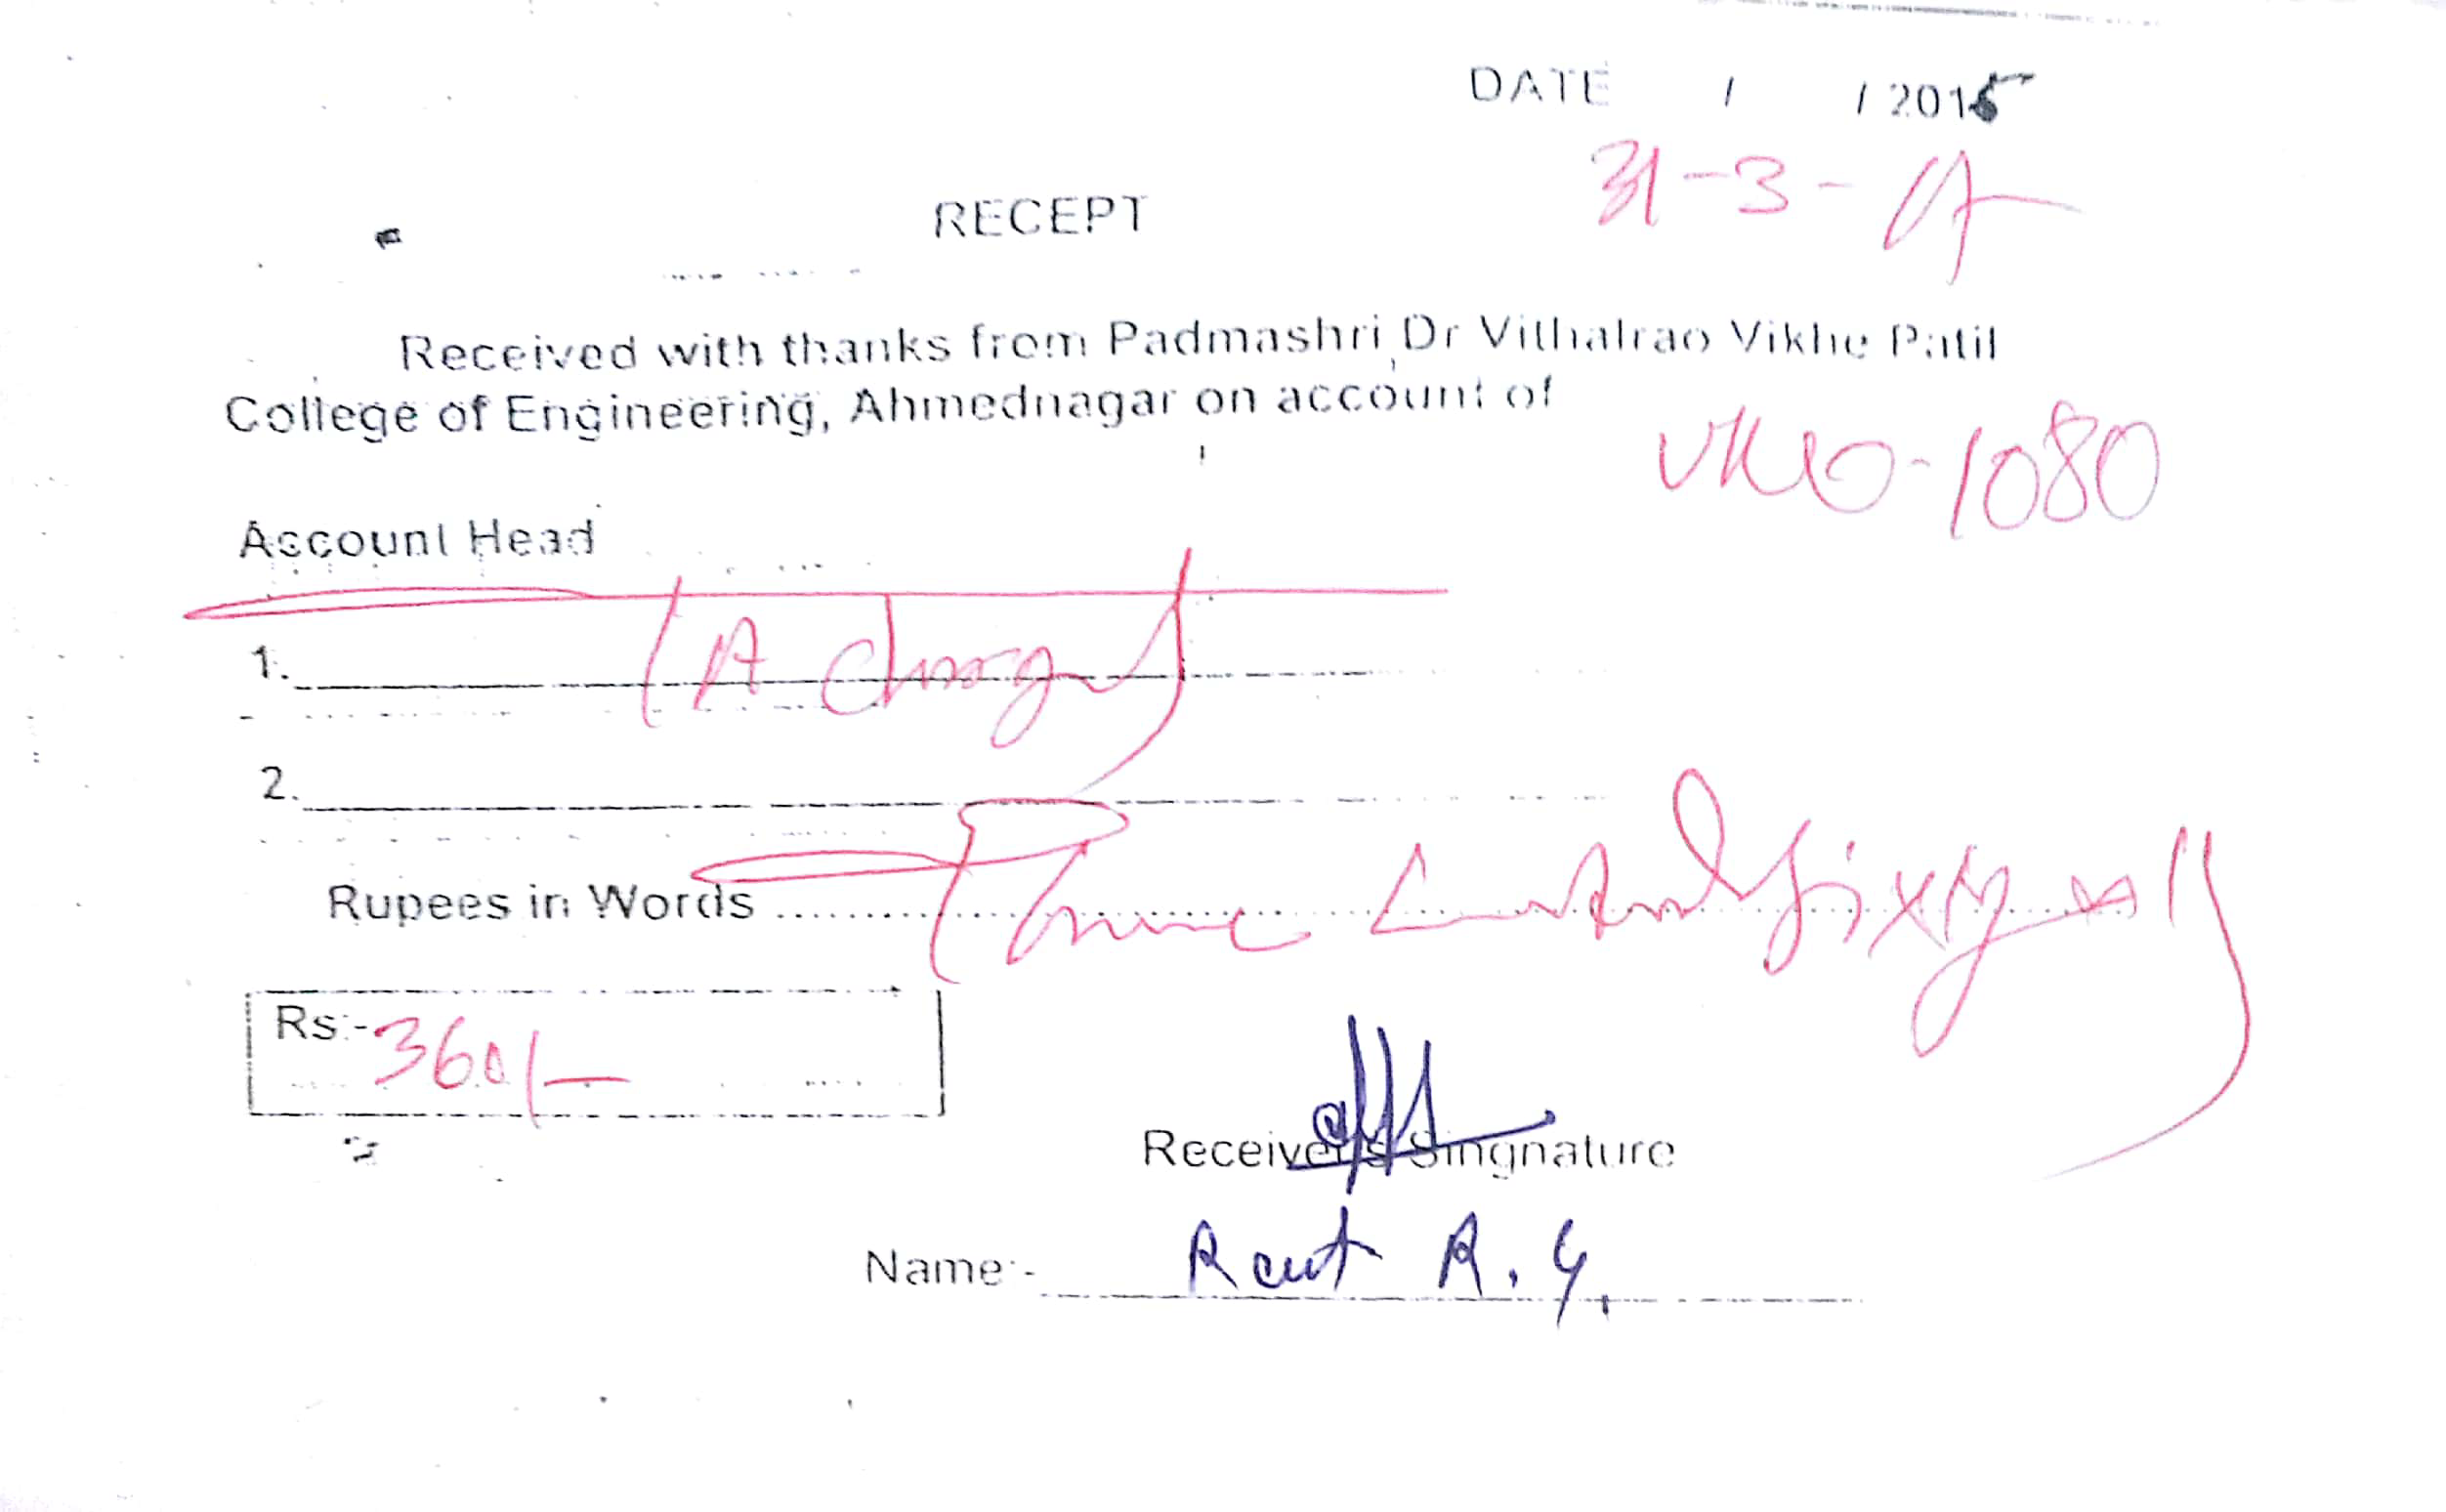 DATE / / 2015
31-3-15
RECEPT
Received with thanks from Padmashri Dr Vithalrao Vikhe Patil
College of Engineering, Ahmednagar on account of
1080
Account Head
1.
2.
Rupees in Words
Rs:- 360/-
Receiver's Singnature
Name:- Raut R. G.